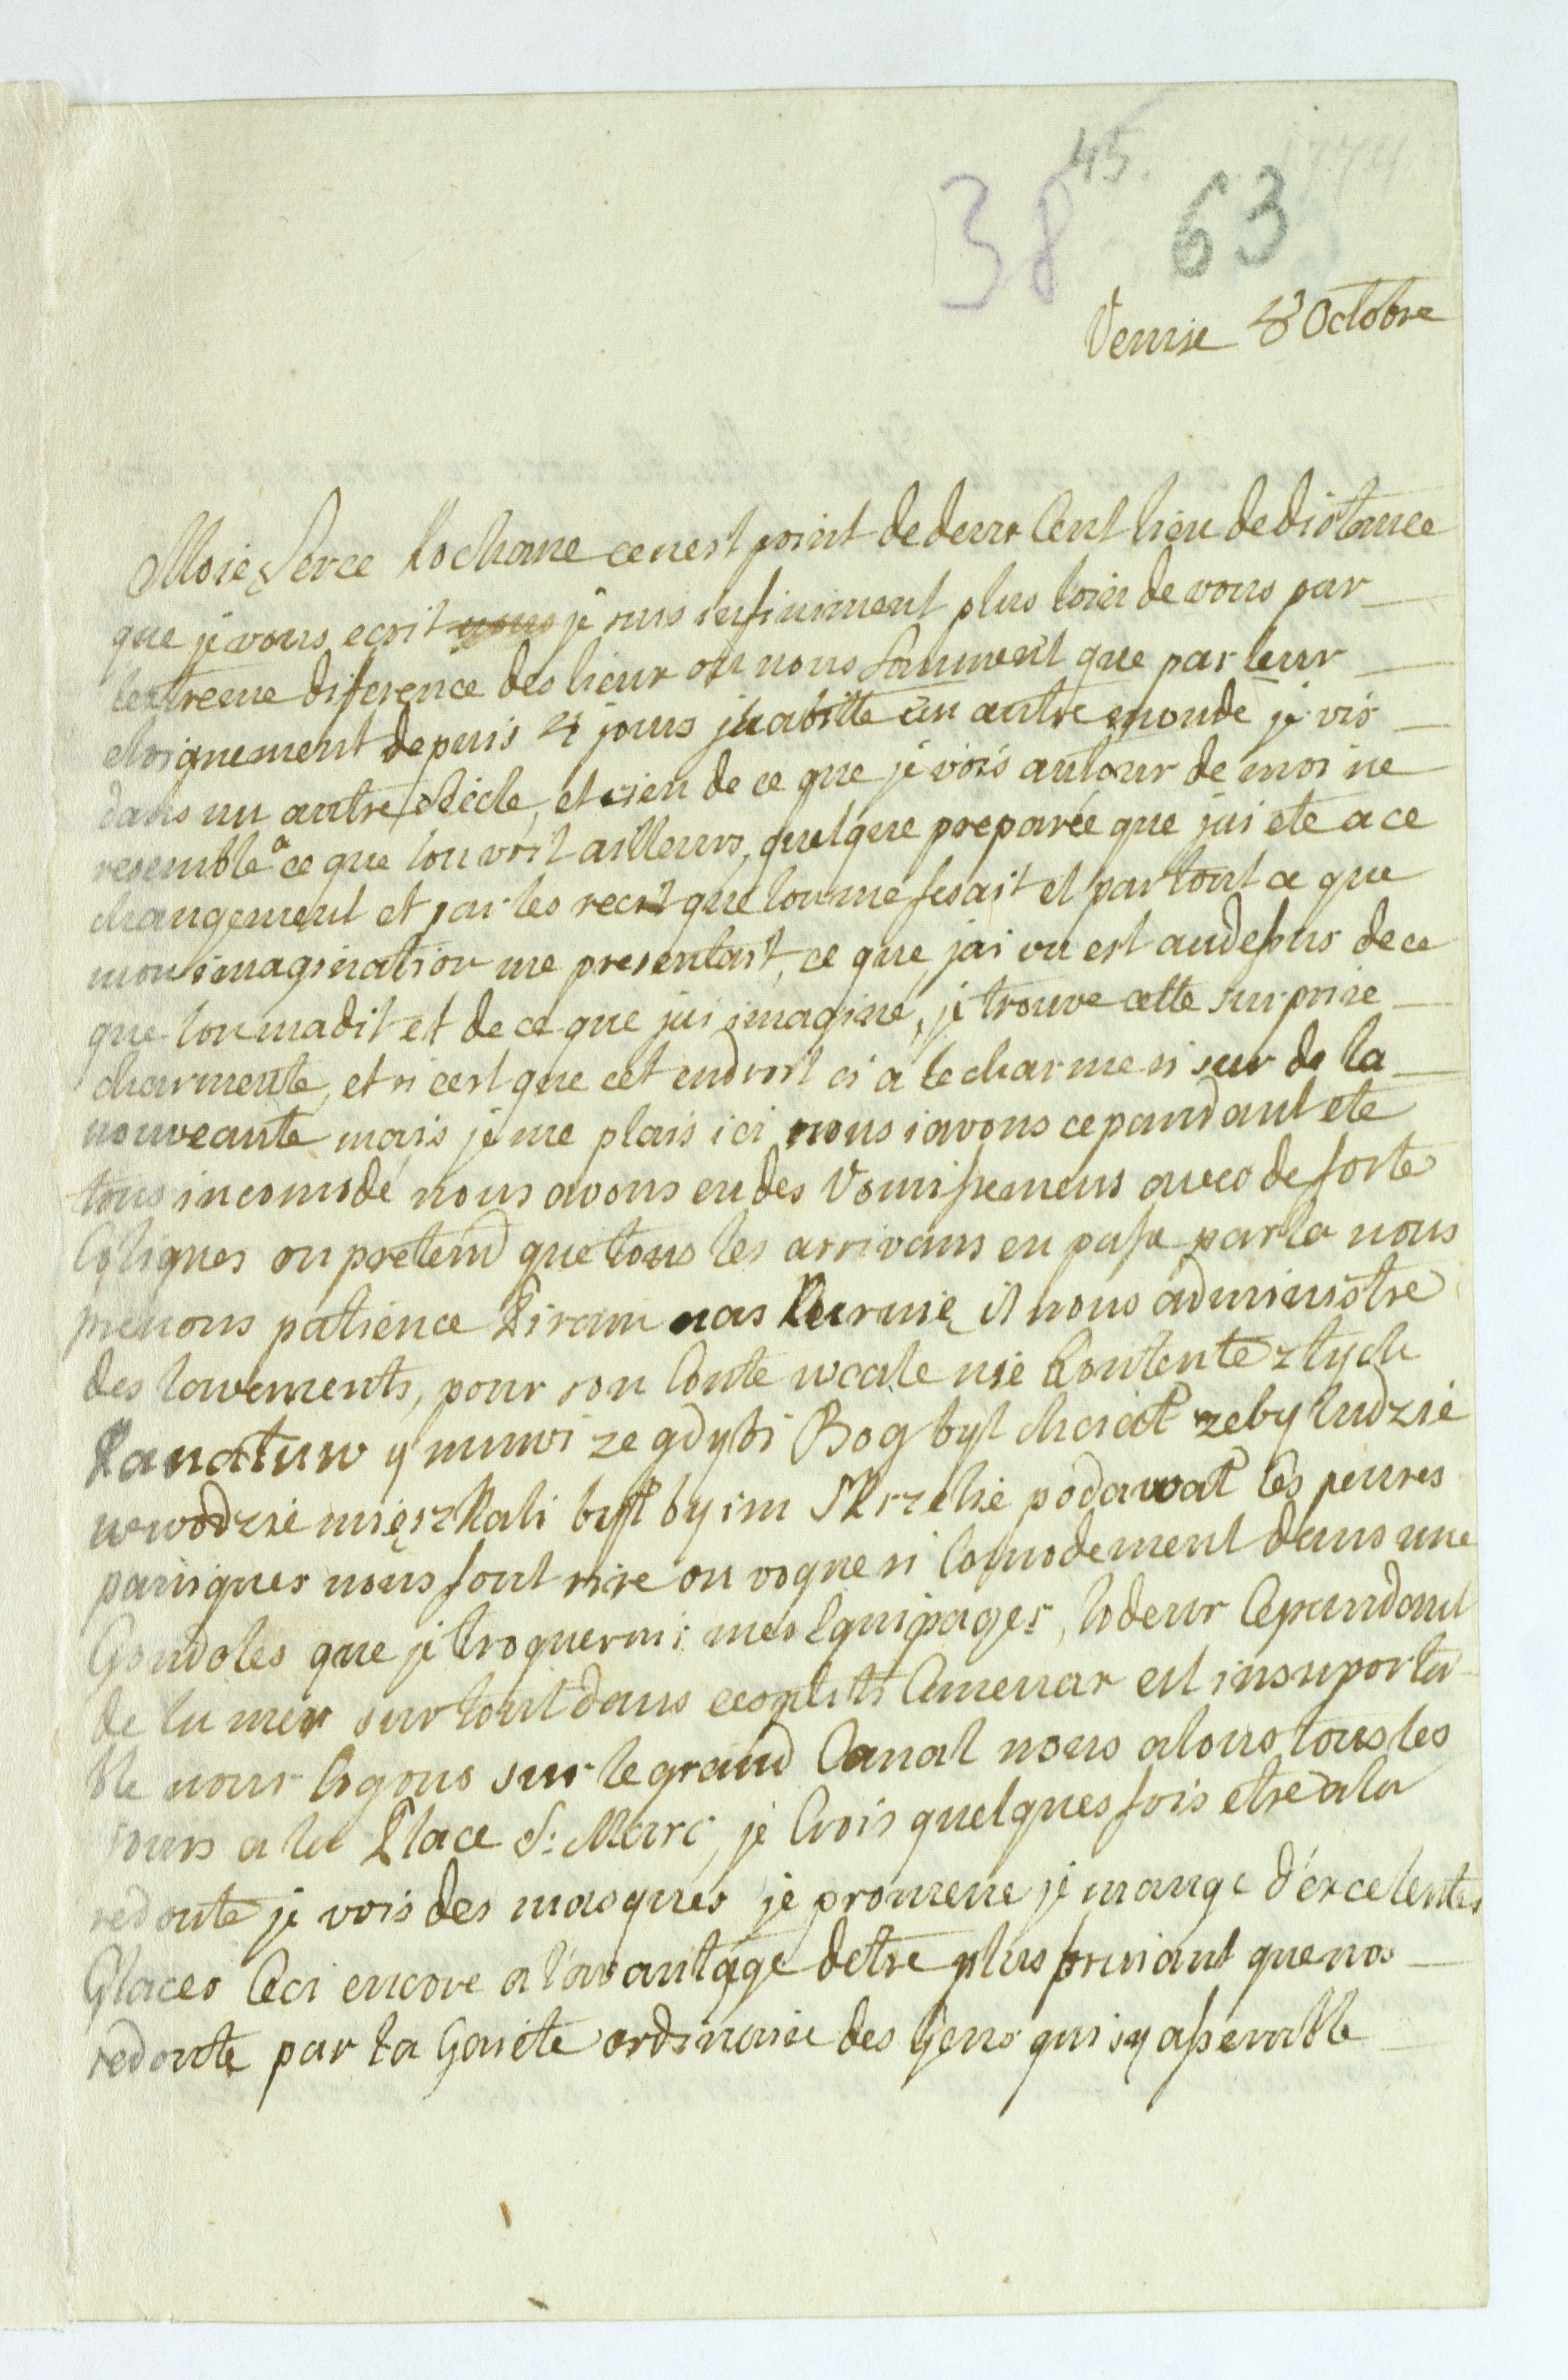 45. 1774
38 63
Venise 8 Octobre
Moie Serce Kochane ce nest point de deux Cent lieu de distance
que je vous ecrit je suis infiniment plus loin de vous par
lextreme diference des lieux ou nous sommest que par leur
eloignement depuis 4 jours jhabitte un autre monde je vis
dans un autre siecle, et rien de ce que je vois autour de moi ne
resemble a ce que lon voit ailleurs, quelque preparée que jai ete a ce
changement et par les recit que lon me fesait et par tout ce que
mon imagination me presentait, ce que jai vu est audessus de ce
que lon madit et de ce que jai imagine, je trouve cette surprise
charmente, et si cest que cet endroit ci a le charme si sur de la
nouveaute mais je me plais ici nous iavons cepandant ete
tous incomodé nous avons eu des Vomissemens avec de forte
Coliques on pretend que tous les arrivans en passe par la nous
prenons patience Piram nas Karmię il nous administre
des lavements, pour son Conte wcale nie Kontente z tych
Kanatuw y muwi ze gdybi Bog byl chciał zeby ludzie
w wodzie mięszkali byłby im Skrzelie podawał les peures
paniques nous font rire on vogue si Comodement dans une
Gondoles que je troquerai mes Equipages, lodeur Cepandant
de la mer surtout dans ces ptiti Cannar est insuporta
ble nous logons sur le grand Canal nous alons tous les
jours a la Place S: Marc, je Crois quelques fois etre a la
redoute je vois des masques je promene je mange d'excelentes
Glaces Ceci encore a lavantage detre plus priant que nos
redoute par la Gaiete ordinaire des Gens qui sy assemble